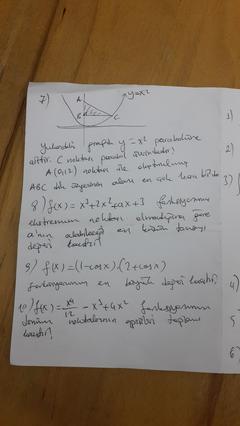 7)
A
B
C
y=x²
Yukarıdaki grafik y = x² parabolüne
aittir. C noktası parabol üzerindedir.
A(0,12) noktası ile oluşturulmuş
ABC dik üçgeninin alanı en çok kaç br²dir
8) f(x) = x³+2x²+ax+3 fonksiyonunun
ekstremum noktası olmadığına göre
a'nın alabileceği en küçük tamsayı
değeri kaçtır?
9) f(x) = (1-cosx).(2+cosx)
fonksiyonunun en büyük değeri kaçtır?
10) f(x) = x⁴/12 - x³ + 4x² fonksiyonunun
dönüm noktalarının apsisleri toplamı
kaçtır?
1)
2)
3)
4)
5
6)